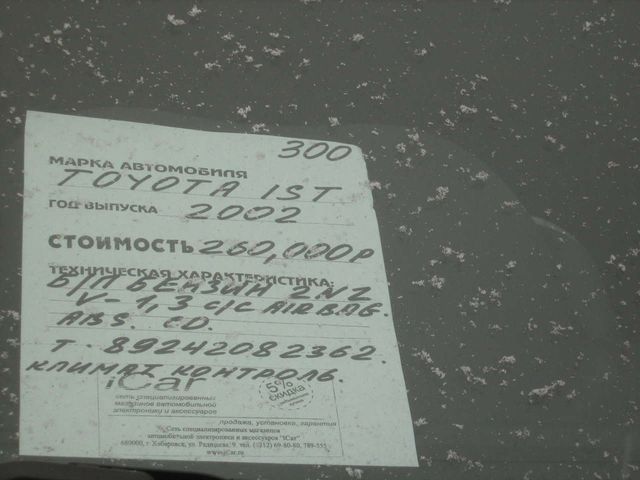 300
МАРКА АВТОМОБИЛЯ
TOYOTA IST
ГОД ВЫПУСКА 2002
СТОИМОСТЬ 260,000р
ТЕХНИЧЕСКАЯ ХАРАКТЕРИСТИКА:
Б/П БЕНЗИН 2NZ
V-1,3 с/с AIRBAG.
ABS. CD.
Т. 89242082362.
КЛИМАТ КОНТРОЛЬ.
iCar
5% скидка
сеть специализированных
магазинов автомобильной
электроники и аксессуаров
продажа, установка, гарантия
Сеть специализированных магазинов
автомобильной электроники и аксессуаров "iCar"
680000, г. Хабаровск, ул. Радищева, 9 тел. (4212) 69-80-80, 789-555
www.iCar.ru